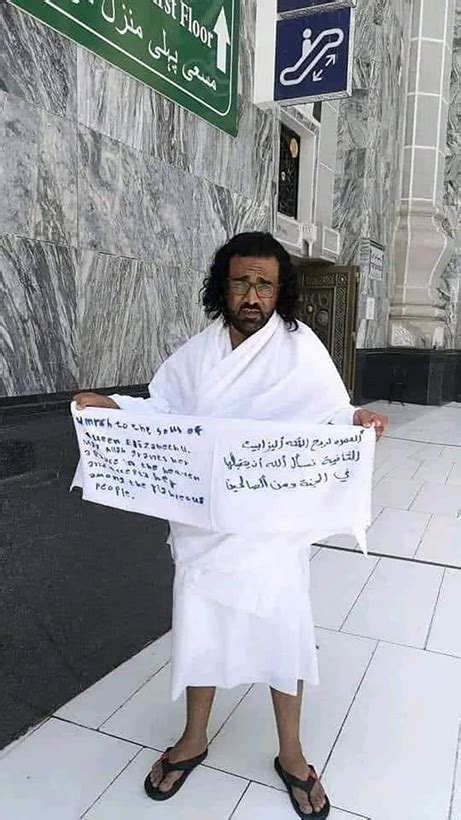 rst Floor
مسعى پہلی منزل
Umrah to the soul of
Queen Elizabeth II.
Allah grants her
in the heaven
her
among the righteous
people.
العمره لروح الملكه اليزابيث
الثانية نسأل الله أن يتقبلها
في الجنة ومن الصالحين